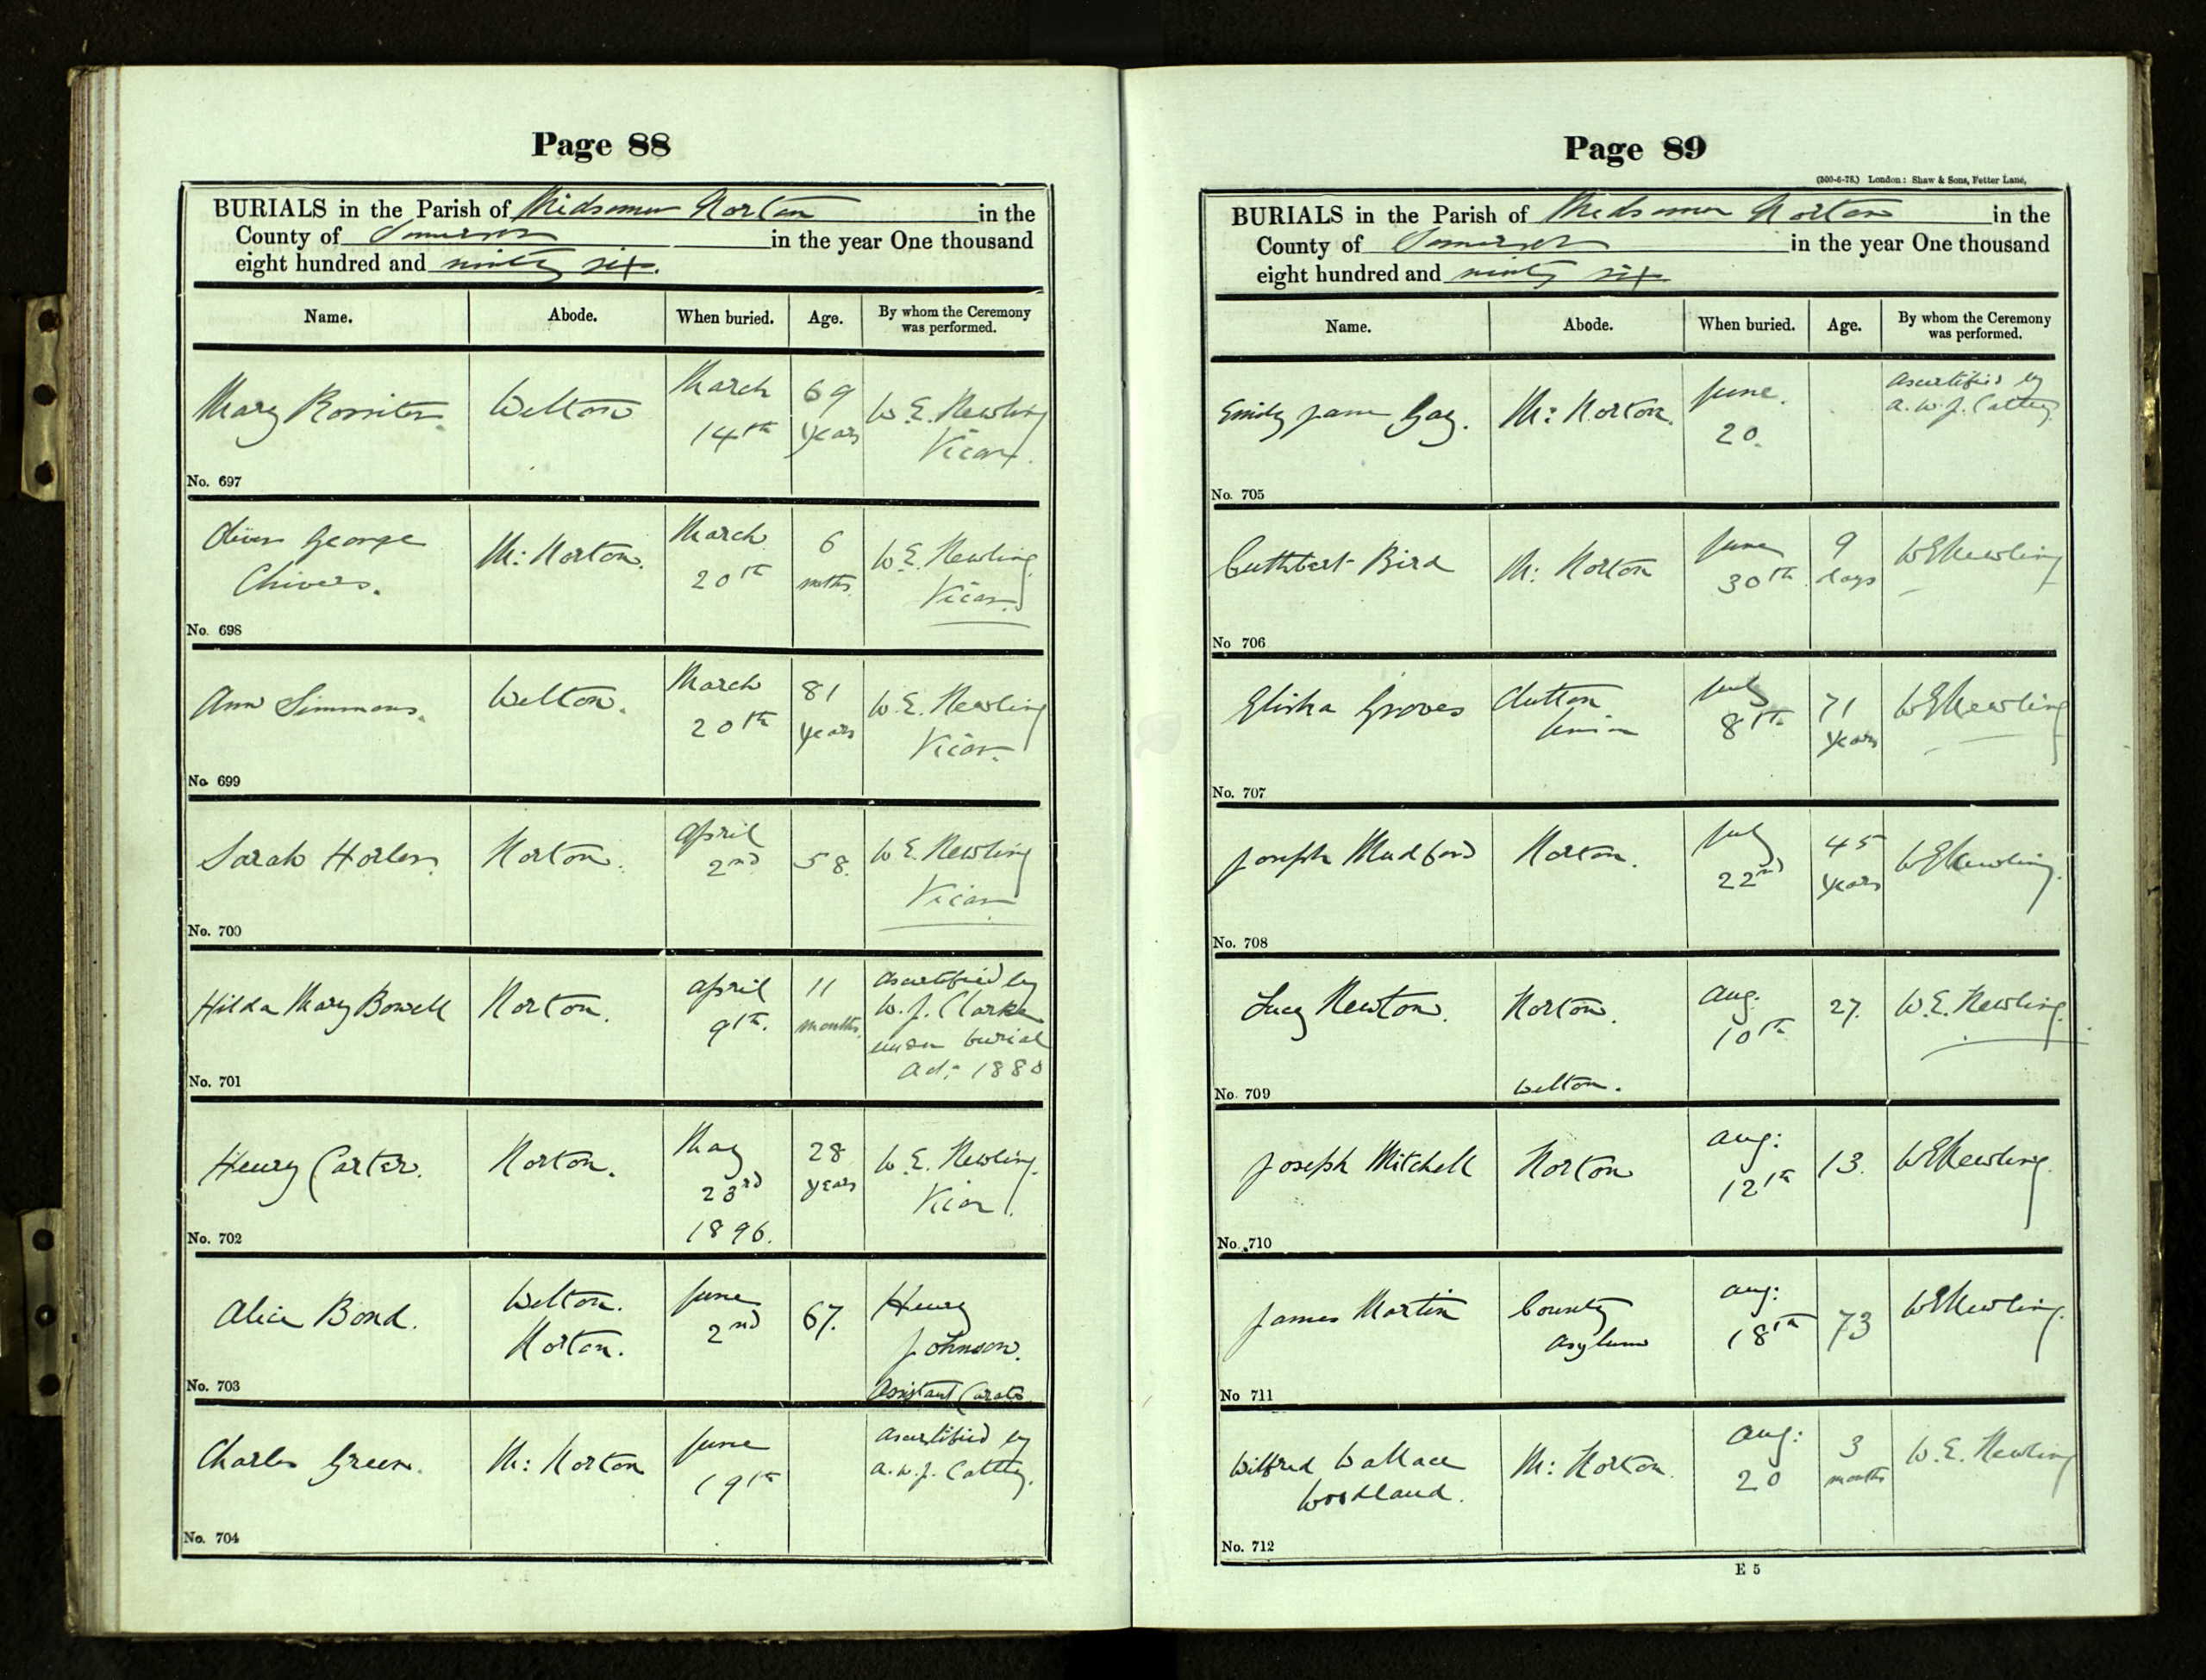 Page 88
BURIALS in the Parish of Midsomer Norton in the
County of Somerset in the year One thousand
eight hundred and ninety six.
Name. Abode. When buried. Age. By whom the Ceremony was performed.
Mary Rossiter. Welton March 14th 69 years W. E. Newling Vicar.
No. 697
Oliver George Chivers. M: Norton. March 20th 6 mths. W. E. Newling Vicar.
No. 698
Ann Simmons. Welton. March 20th 81 years W. E. Newling Vicar.
No. 699
Sarah Horler. Norton. April 2nd 58. W. E. Newling Vicar
No. 700
Hilda Mary Bowell Norton. April 9th. 11 months. As certified by W. J. Clarke under burial Act 1880
No. 701
Henry Carter. Norton. May 23rd 1896. 28 years W. E. Newling. Vicar.
No. 702
Alice Bond. Welton. Norton. June 2nd 67. Henry Johnson. Assistant Curate
No. 703
Charles Green. M: Norton June 19th As certified by A. W. J.
No. 704
Page 89
(300-6-75.) London: Shaw & Sons, Fetter Lane,
BURIALS in the Parish of Midsomer Norton in the
County of Somerset in the year One thousand
eight hundred and ninety six
Name. Abode. When buried. Age. By whom the Ceremony was performed.
Emily Jane Gay. M: Norton. June. 20. As certified by A. W. J.
No. 705
Cuthbert Bird M: Norton June 30th 9 days W E Newling
No 706
Elisha Groves Clutton Union July 8th 71 years W E Newling
No. 707
Joseph Mudford Norton. July 22nd 45 years W E Newling.
No. 708
Lucy Newton. Norton. Welton. Aug. 10th 27. W. E. Newling.
No. 709
Joseph Mitchell Norton Aug: 12th 13. W E Newling.
No. 710
James Martin County Asylum Aug: 18th 73 W E Newling.
No 711
Wilfred Wallace Woodland. M: Norton. Aug: 20 3 months W. E. Newling
No. 712
E 5